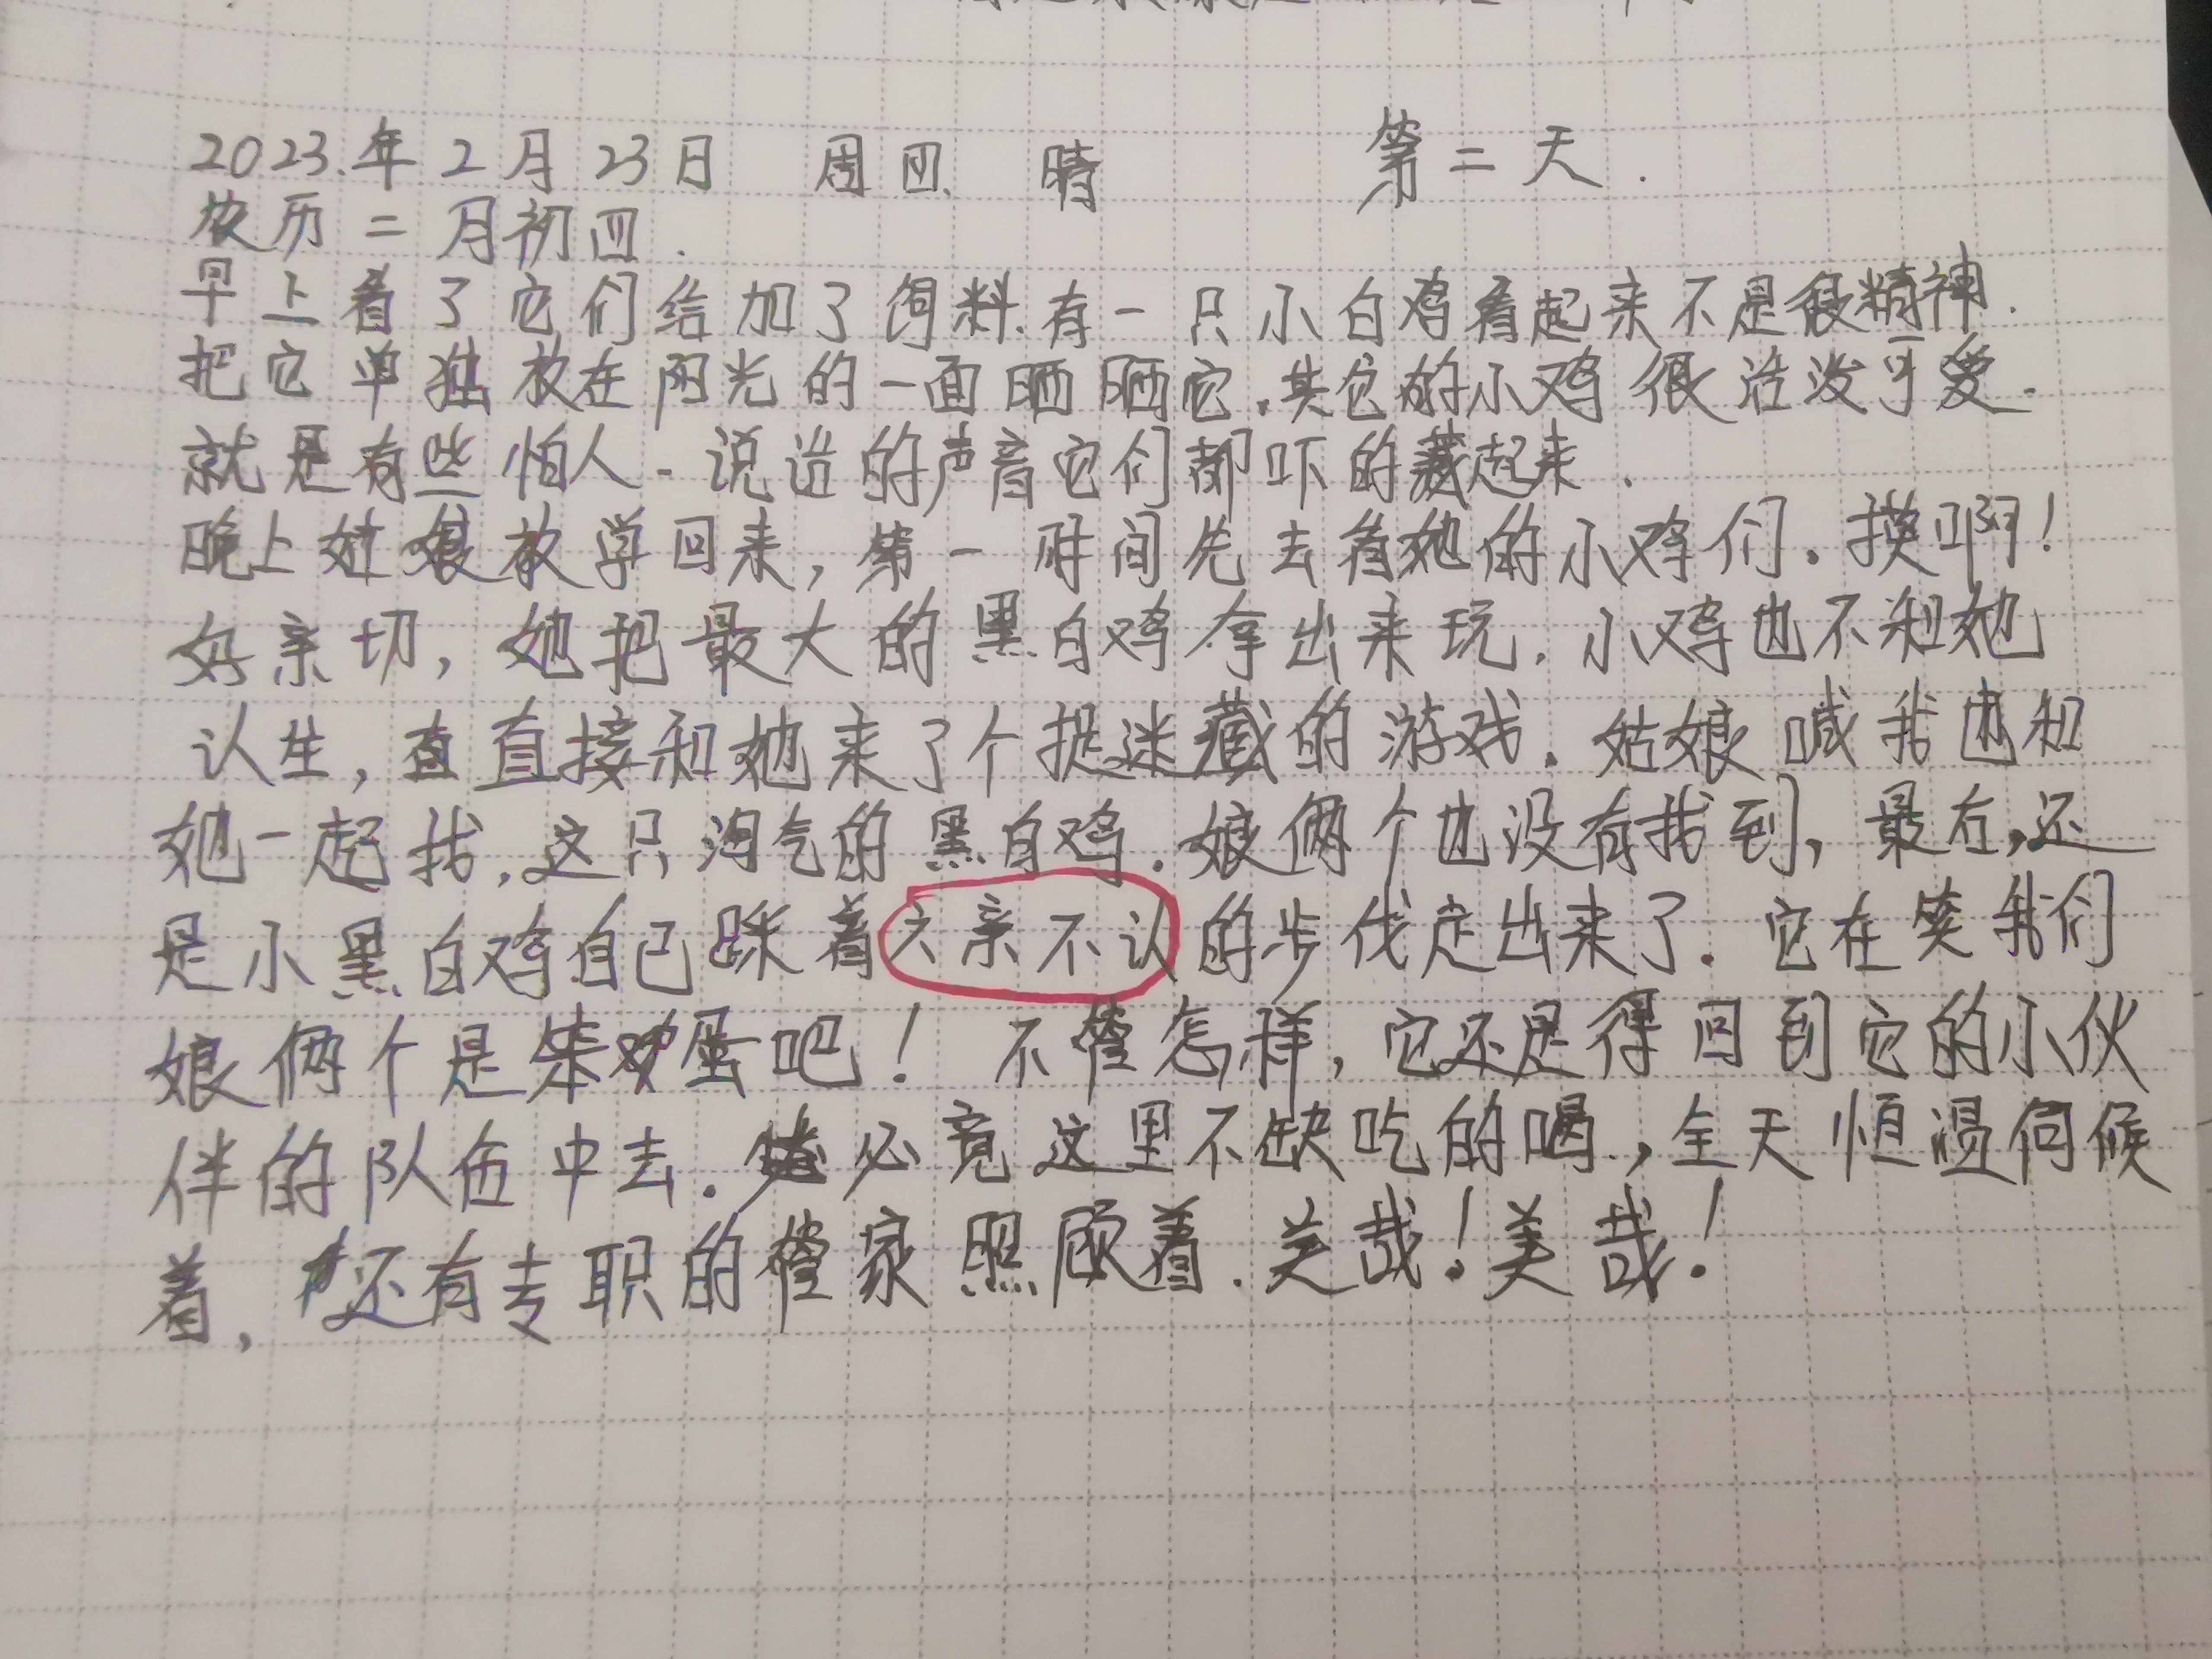 2023.年2月23日 周四. 晴 第二天.
农历二月初四.
早上看了它们给加了饲料.有一只小白鸡看起来不是很精神.
把它单独放在阳光的一面晒晒它.其它的小鸡很活泼可爱.
就是有些怕人.说话的声音它们都吓的藏起来.
晚上姑娘放学回来,第一时间先去看她的小鸡们.摸啊!
好亲切,她把最大的黑白鸡拿出来玩.小鸡也不和她
认生,直直接和她来了个捉迷藏的游戏.姑娘喊我也和
她一起找.这只淘气的黑白鸡.娘俩个也没有找到,最后,还
是小黑白鸡自己踩着六亲不认的步伐走出来了.它在笑我们
娘俩个是笨鸡蛋吧! 不管怎样,它还是得回到它的小伙
伴的队伍中去.必竟这里不缺吃的喝.,全天恒温伺候
着,还有专职的管家照顾着.美哉!美哉!